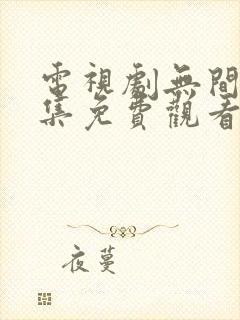 電視劇無間
集免費觀看
夜蔓